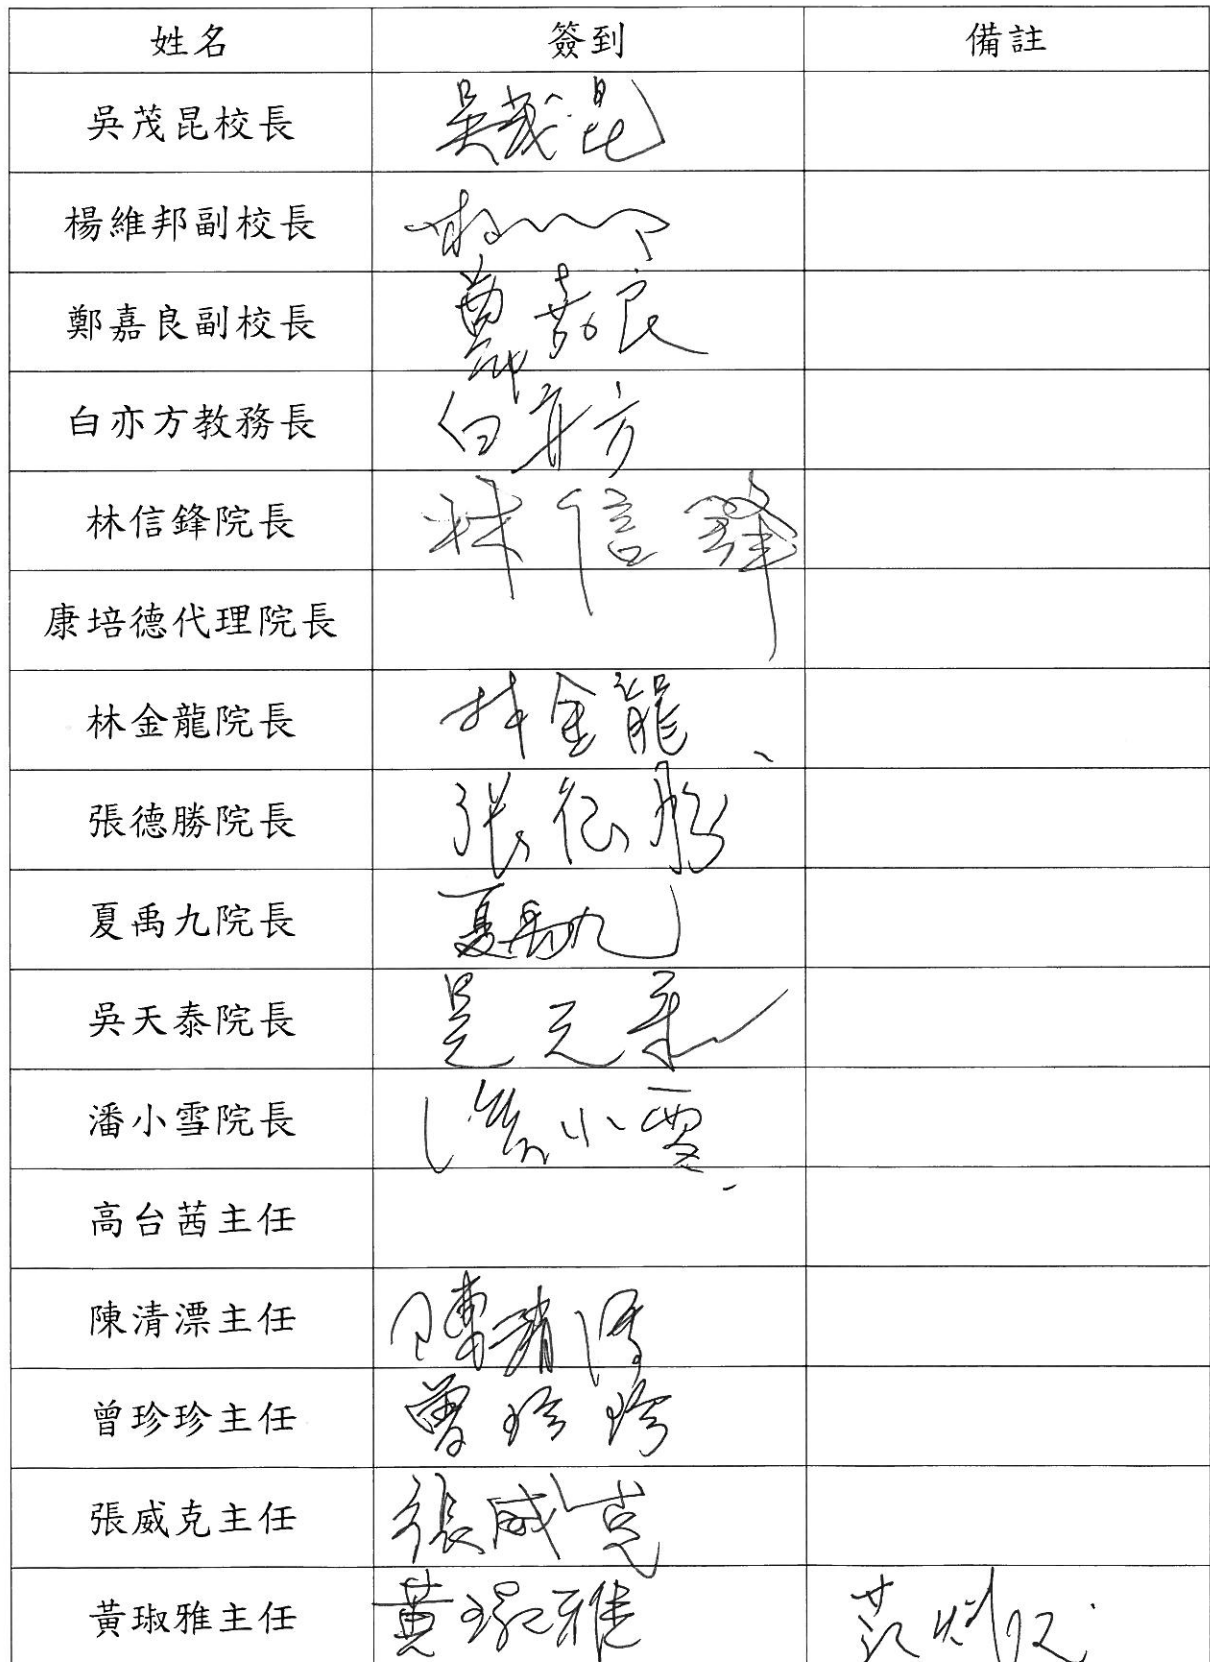 姓名 簽到 備註
吳茂昆校長 吳茂昆
楊維邦副校長
鄭嘉良副校長 鄭嘉良
白亦方教務長 白亦方
林信鋒院長 林信鋒
康培德代理院長
林金龍院長 林金龍
張德勝院長 張德勝
夏禹九院長 夏禹九
吳天泰院長 吳天泰
潘小雪院長 潘小雪
高台茜主任
陳清漂主任 陳清漂
曾珍珍主任 曾珍珍
張威克主任 張威克
黃琡雅主任 黃琡雅